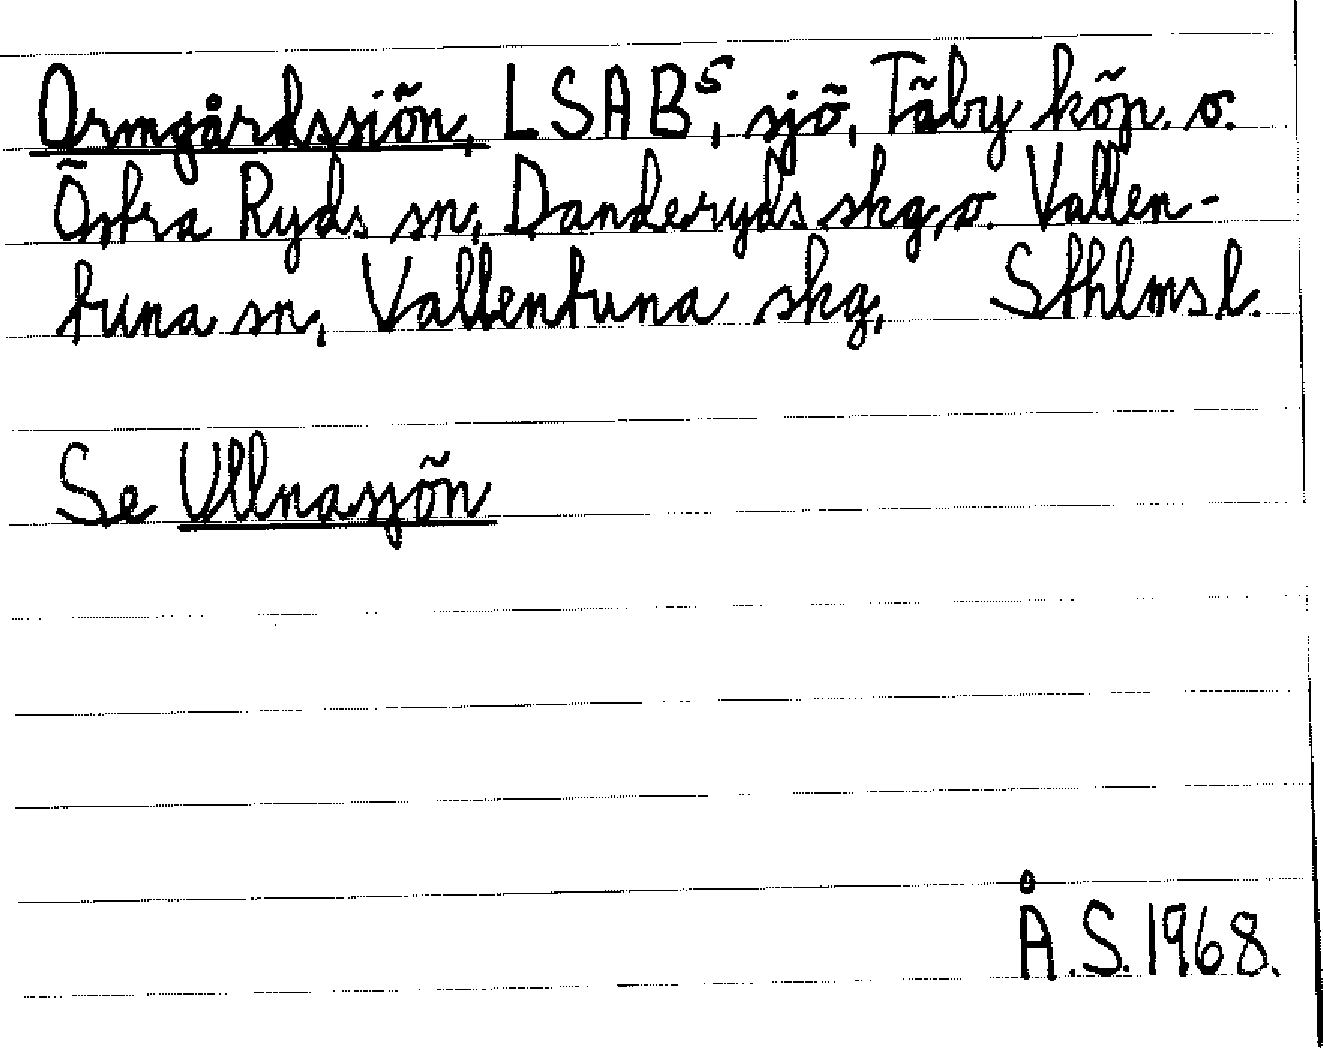 Ormgårdssiön, LSAB⁵, sjö, Täby köp. o.
Östra Ryds sn, Danderyds skg, o. Vallen-
tuna sn, Vallentuna skg, Sthlms l.
Se Ullnasjön
Å.S. 1968.